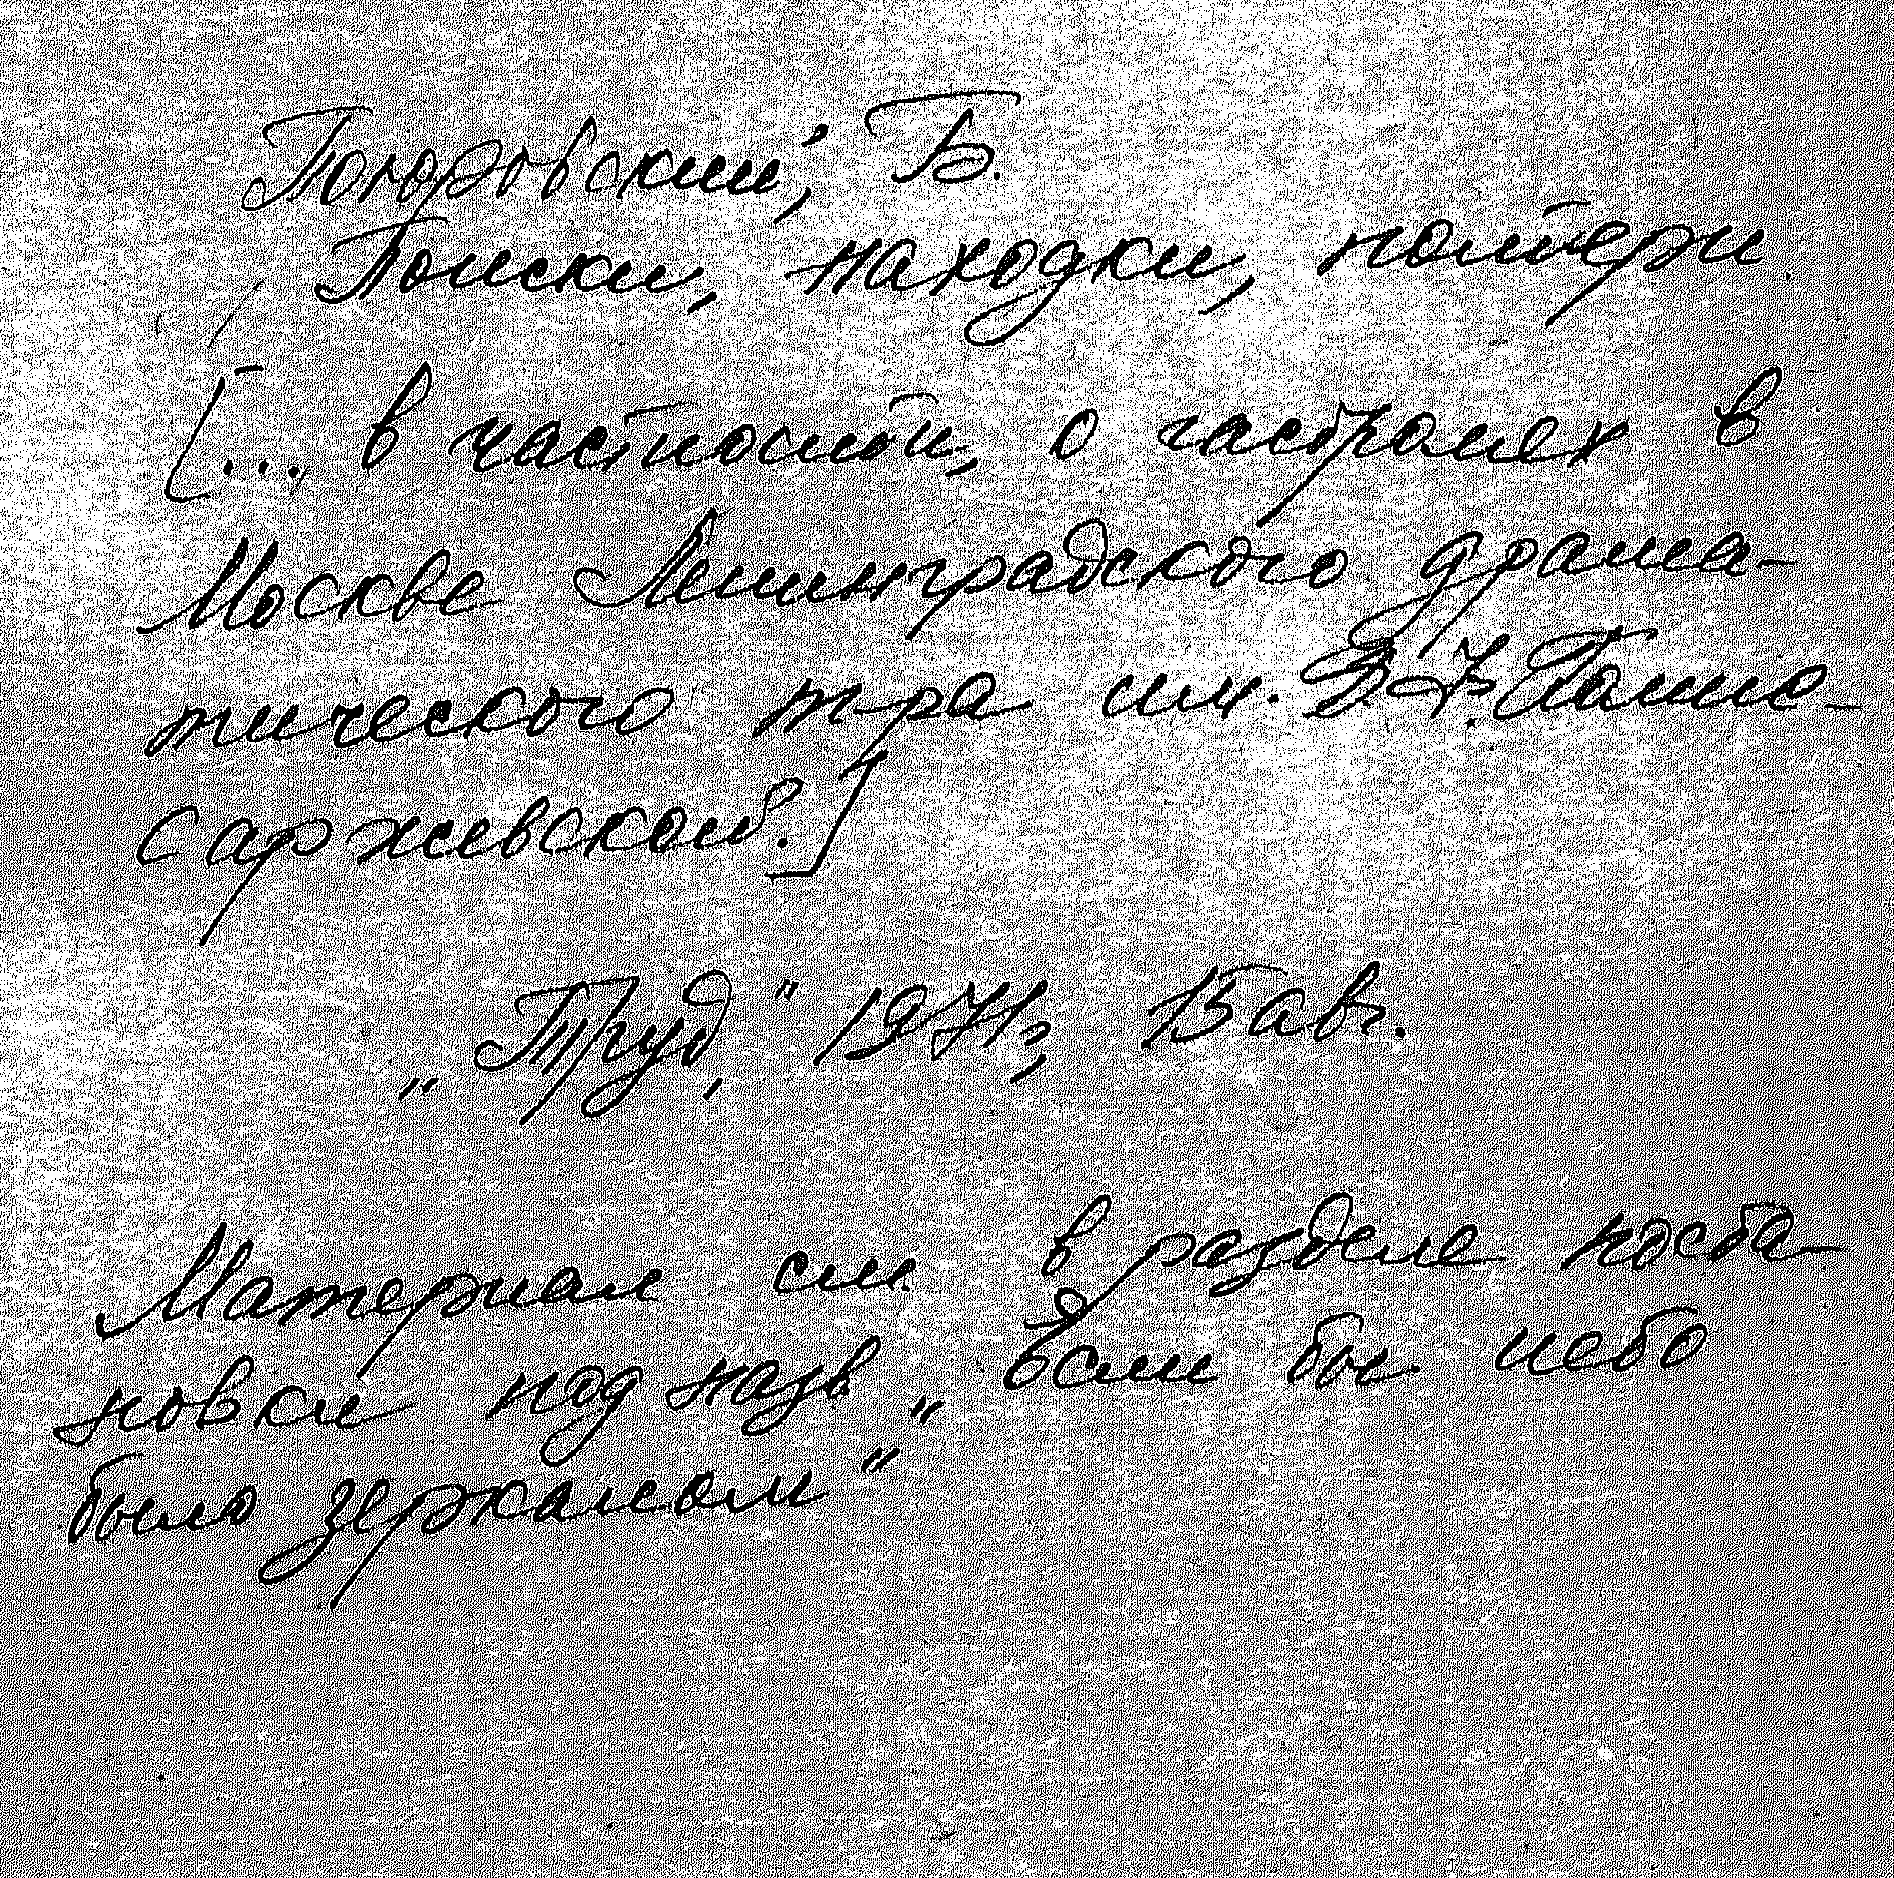 Покровский, Б.
Поиски, находки, потери
[... в частности, о гастролях в
Москве Ленинградского драма-
тического т-ра им. В. Ф. Комис-
саржевской.]
„Труд", 1971, 15 авг.
Материал см. в разделе поста-
новки под назв. „Если бы небо
было зеркалом"